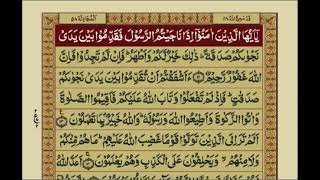 قد سمع الله ٢٨
المجادلة ٥٨
يٰۤاَيُّهَا الَّذِيْنَ اٰمَنُوْۤا اِذَا نَاجَيْتُمُ الرَّسُوْلَ فَقَدِّمُوْا بَيْنَ يَدَيْ
نَجْوٰىكُمْ صَدَقَةً ؕ ذٰلِكَ خَيْرٌ لَّكُمْ وَاَطْهَرُ ؕ فَاِنْ لَّمْ تَجِدُوْا فَاِنَّ
اللّٰهَ غَفُوْرٌ رَّحِيْمٌ ءَاَشْفَقْتُمْ اَنْ تُقَدِّمُوْا بَيْنَ يَدَيْ نَجْوٰىكُمْ
صَدَقٰتٍ ؕ فَاِذْ لَمْ تَفْعَلُوْا وَتَابَ اللّٰهُ عَلَيْكُمْ فَاَقِيْمُوا الصَّلٰوةَ
وَاٰتُوا الزَّكٰوةَ وَاَطِيْعُوا اللّٰهَ وَرَسُوْلَهٗ ؕ وَاللّٰهُ خَبِيْرٌۢ بِمَا تَعْمَلُوْنَ
اَلَمْ تَرَ اِلَى الَّذِيْنَ تَوَلَّوْا قَوْمًا غَضِبَ اللّٰهُ عَلَيْهِمْ ؕ مَا هُمْ مِّنْكُمْ
وَلَا مِنْهُمْ ۙ وَيَحْلِفُوْنَ عَلَى الْكَذِبِ وَهُمْ يَعْلَمُوْنَ اَعَدَّ اللّٰهُ